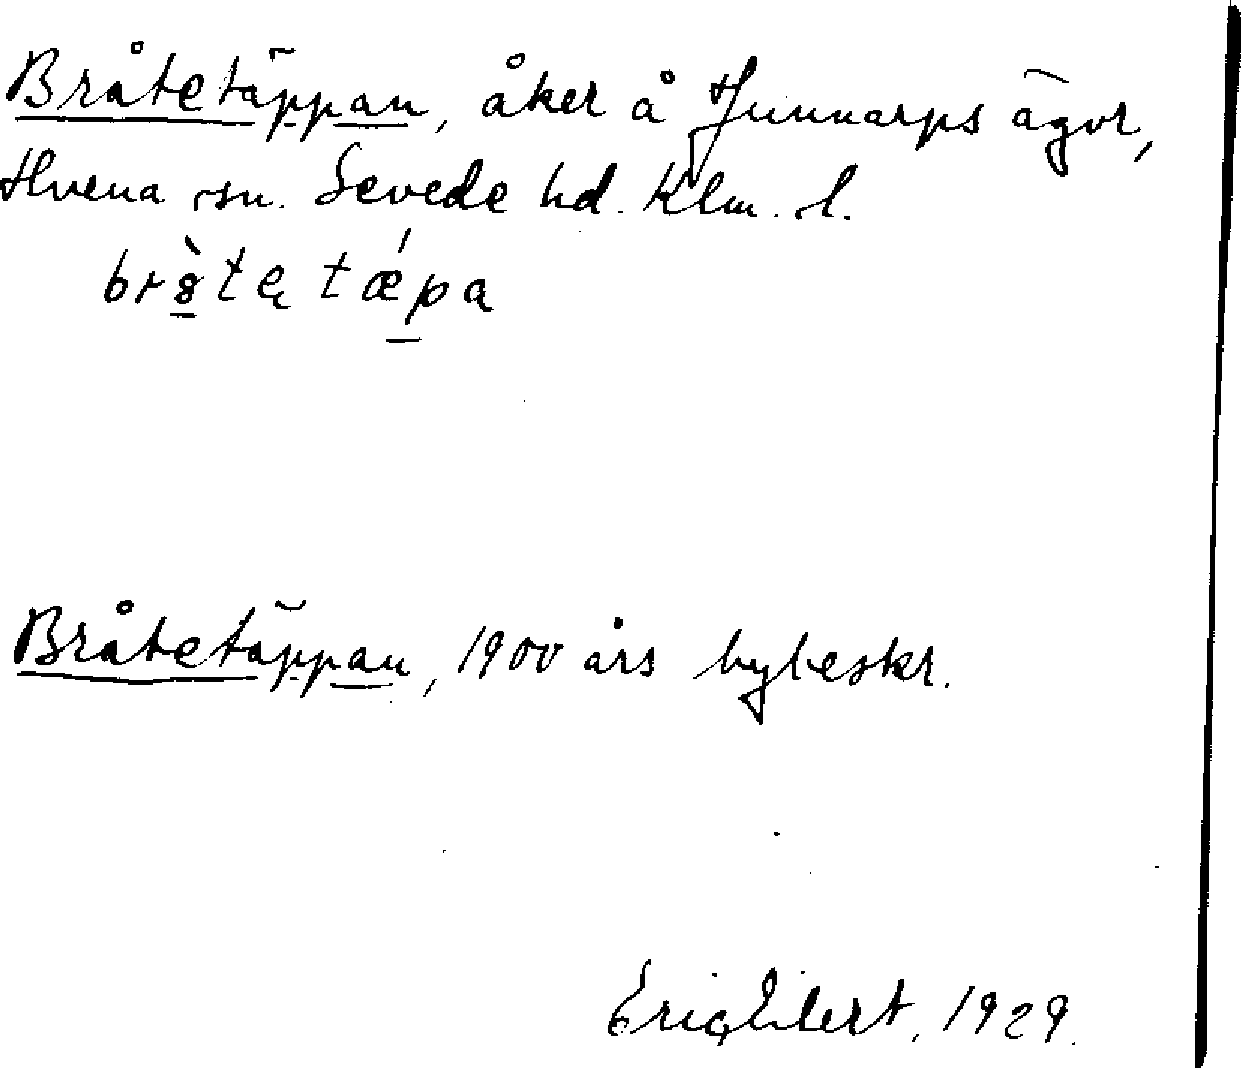 Bråtetäppan, åker å Gunnarps ägor,
Hvena sn. Sevede hd. Klm. l.
Bråtetäppan, 1900 års bybeskr.
Eric Eilert, 1929.